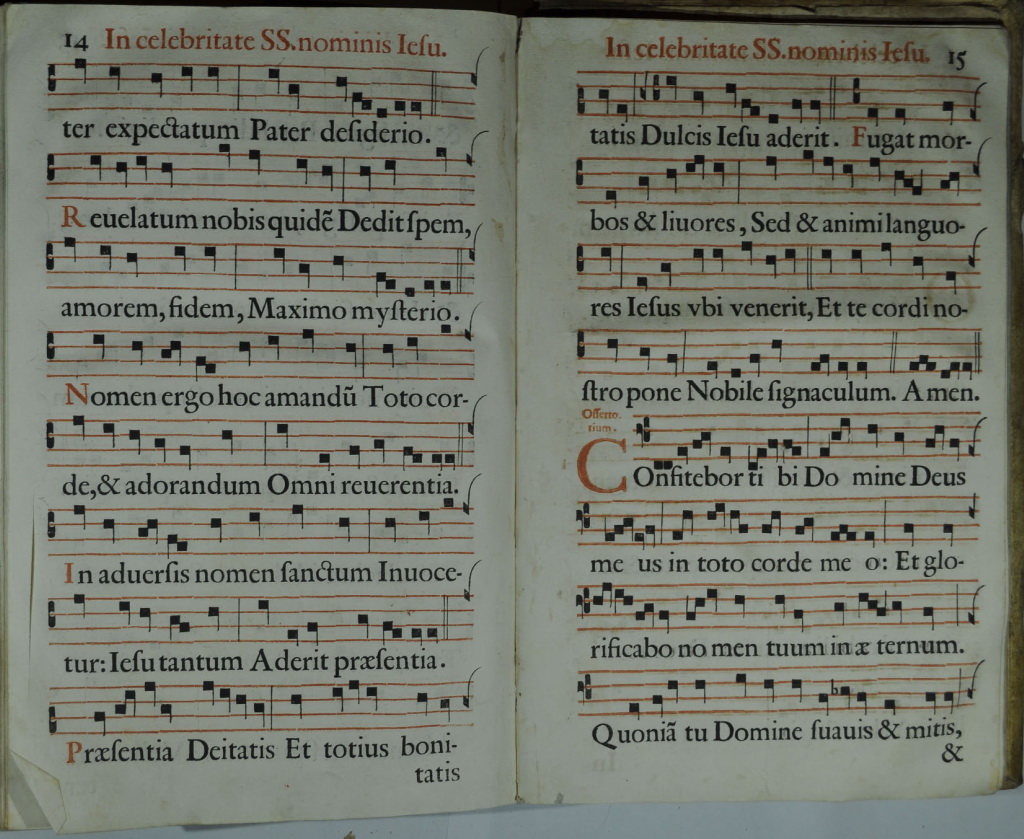 14 In celebritate SS. nominis Iesu.
ter expectatum Pater desiderio.
Reuelatum nobis quidē Dedit spem,
amorem, fidem, Maximo mysterio.
Nomen ergo hoc amandū Toto cor-
de, & adorandum Omni reuerentia.
In aduersis nomen sanctum Inuoce-
tur: Iesu tantum Aderit præsentia.
Præsentia Deitatis Et totius boni-
tatis
In celebritate SS. nominis Iesu. 15
tatis Dulcis Iesu aderit. Fugat mor-
bos & liuores, Sed & animi languo-
res Iesus vbi venerit, Et te cordi no-
stro pone Nobile signaculum. Amen.
Offerto.
rium.
COnfitebor ti bi Do mine Deus
me us in toto corde me o: Et glo-
rificabo no men tuum in æ ternum.
Quoniā tu Domine suauis & mitis,
&